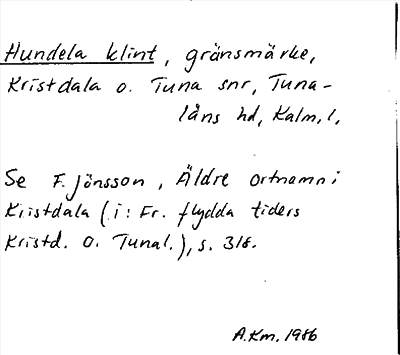 Hundela klint, gränsmärke,
Kristdala o. Tuna snr, Tuna-
läns hd, Kalm. l.
Se F. Jönsson, Äldre ortnamn i
Kristdala (i: Fr. flydda tiders
Kristd. o. Tunal.), s. 318.
A.Km. 1986